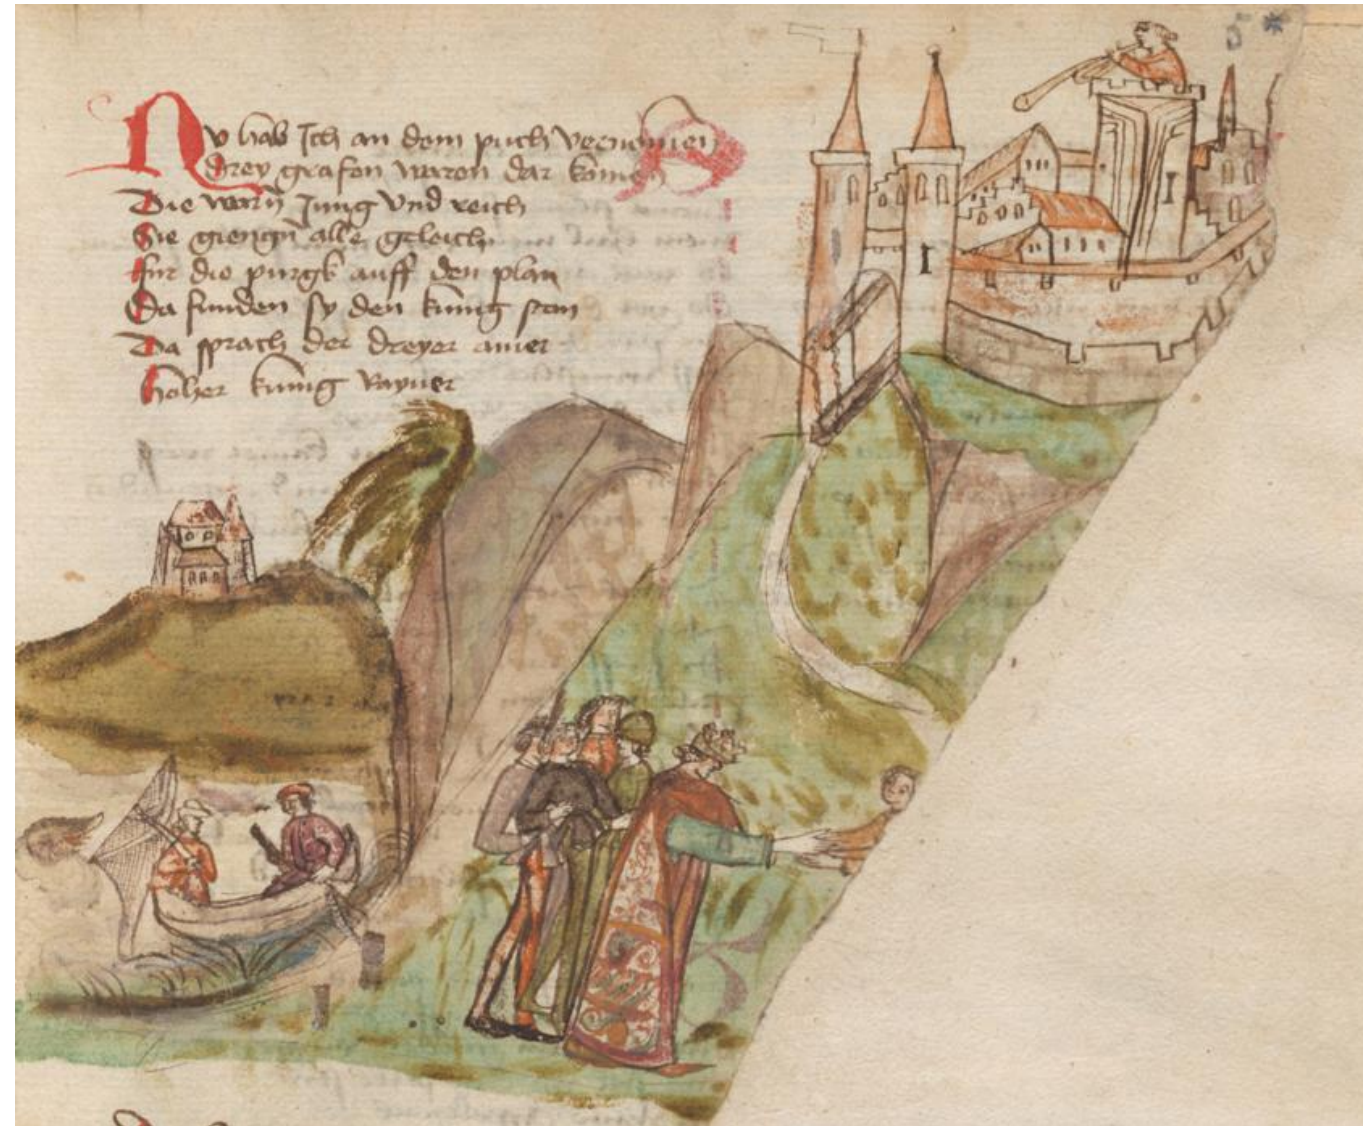 Nv hab Ich an dem puch vernomen
drey grafen waren dar kome
Die warn̄ Jung vnd reich
Sie giengn̄ alle geleich
für die purgk auff den plan
Da funden sy den kunig stan
Da sprach der dreyer ainer
hoher kunig Rayner